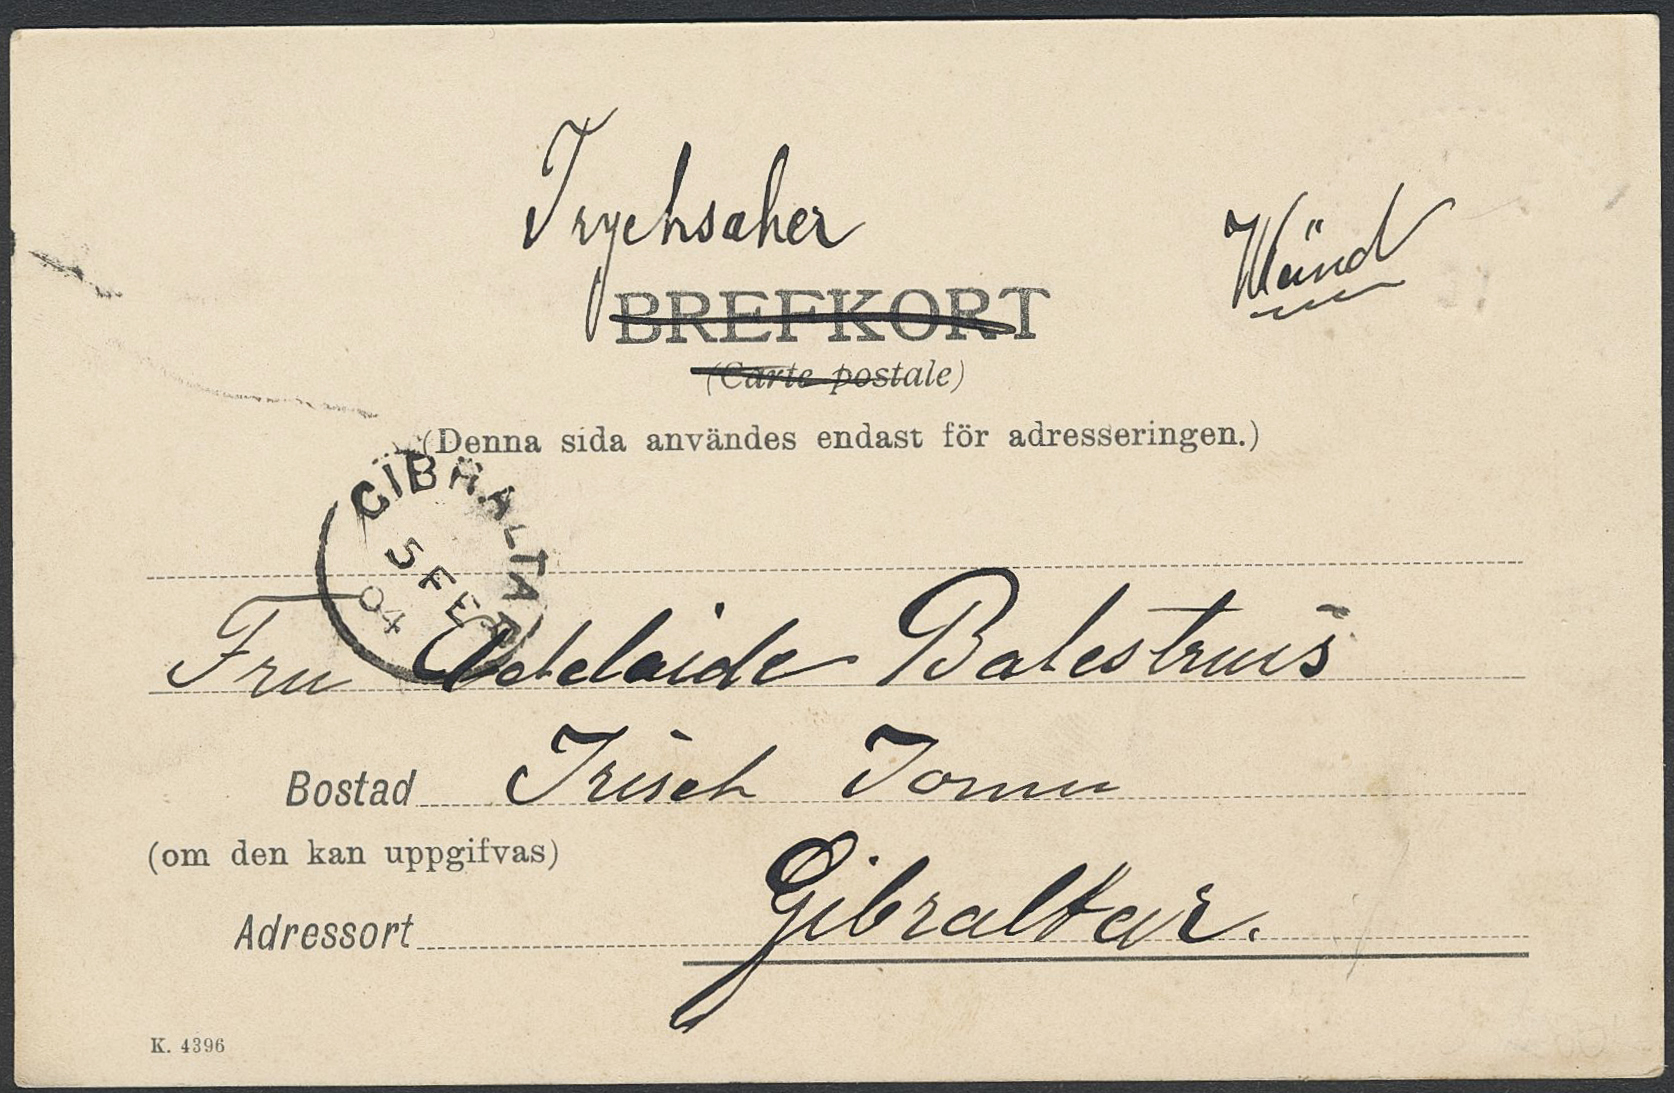 Trychsaher
Wänd
BREFKORT
(Carte postale)
(Denna sida användes endast för adresseringen.)
GIBRALTAR
5 FE
04
Fru Adelaide Balestrinis
Bostad Irisch Town
(om den kan uppgifvas)
Adressort Gibraltar.
K. 4396